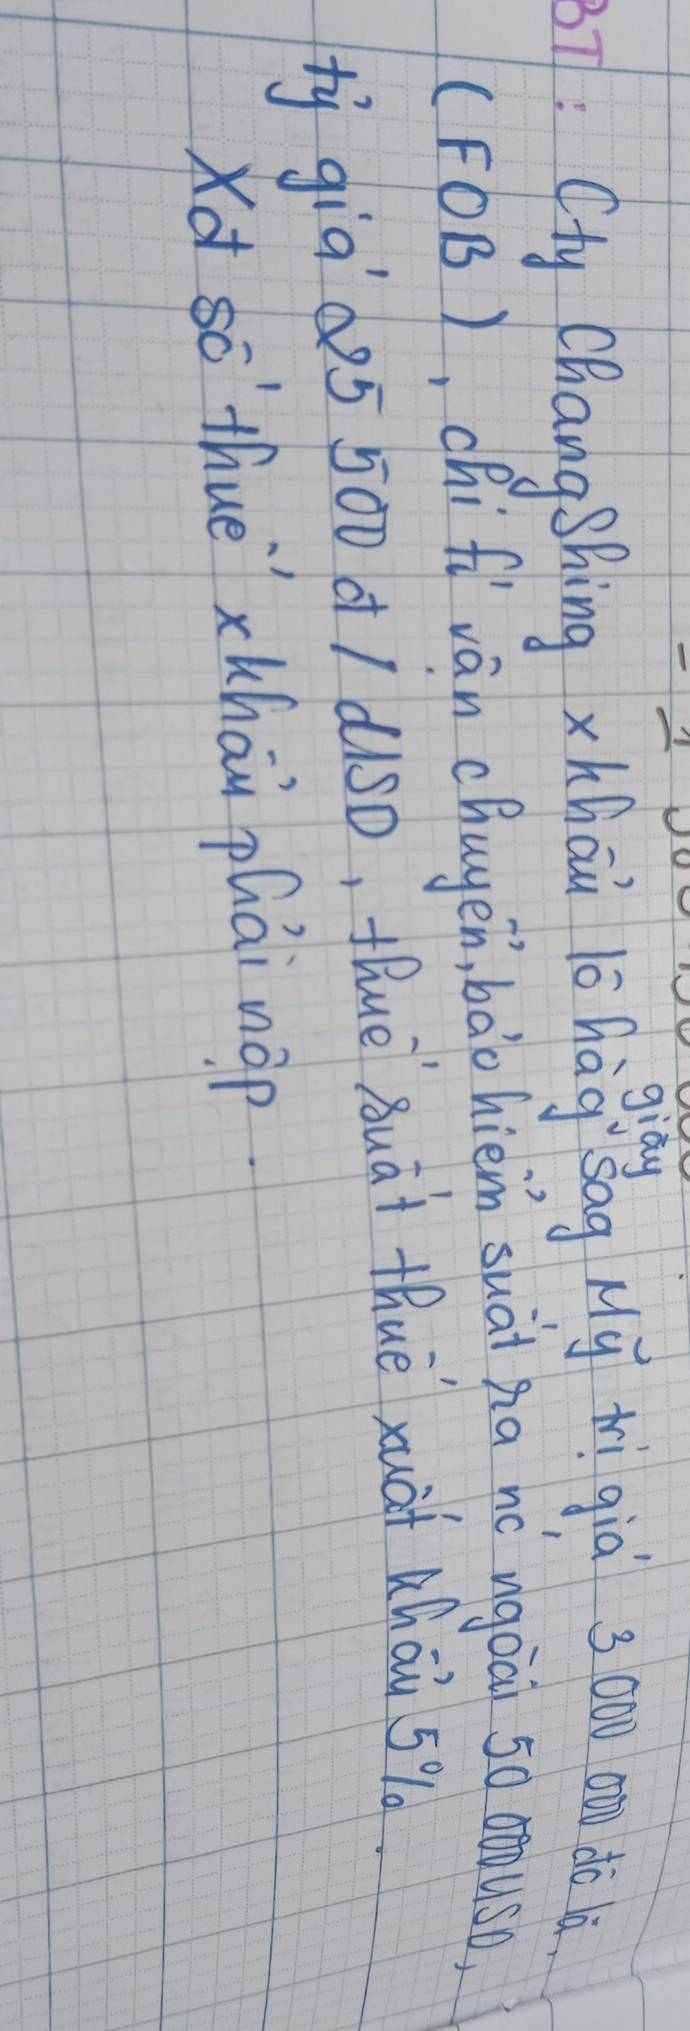 BT : Cty ChangShing xkhẩu lô hàg giày sag Mỹ trị giá 3 000 000 đô la
(FOB), chi fí vận chuyển, bảo hiểm suất ra nc' ngoài 50 000 USD,
tỷ giá 25 500 đ / dUSD, thuế suất thuế xuất khẩu 5%.
Xđ số thuế xkhẩu phải nộp.